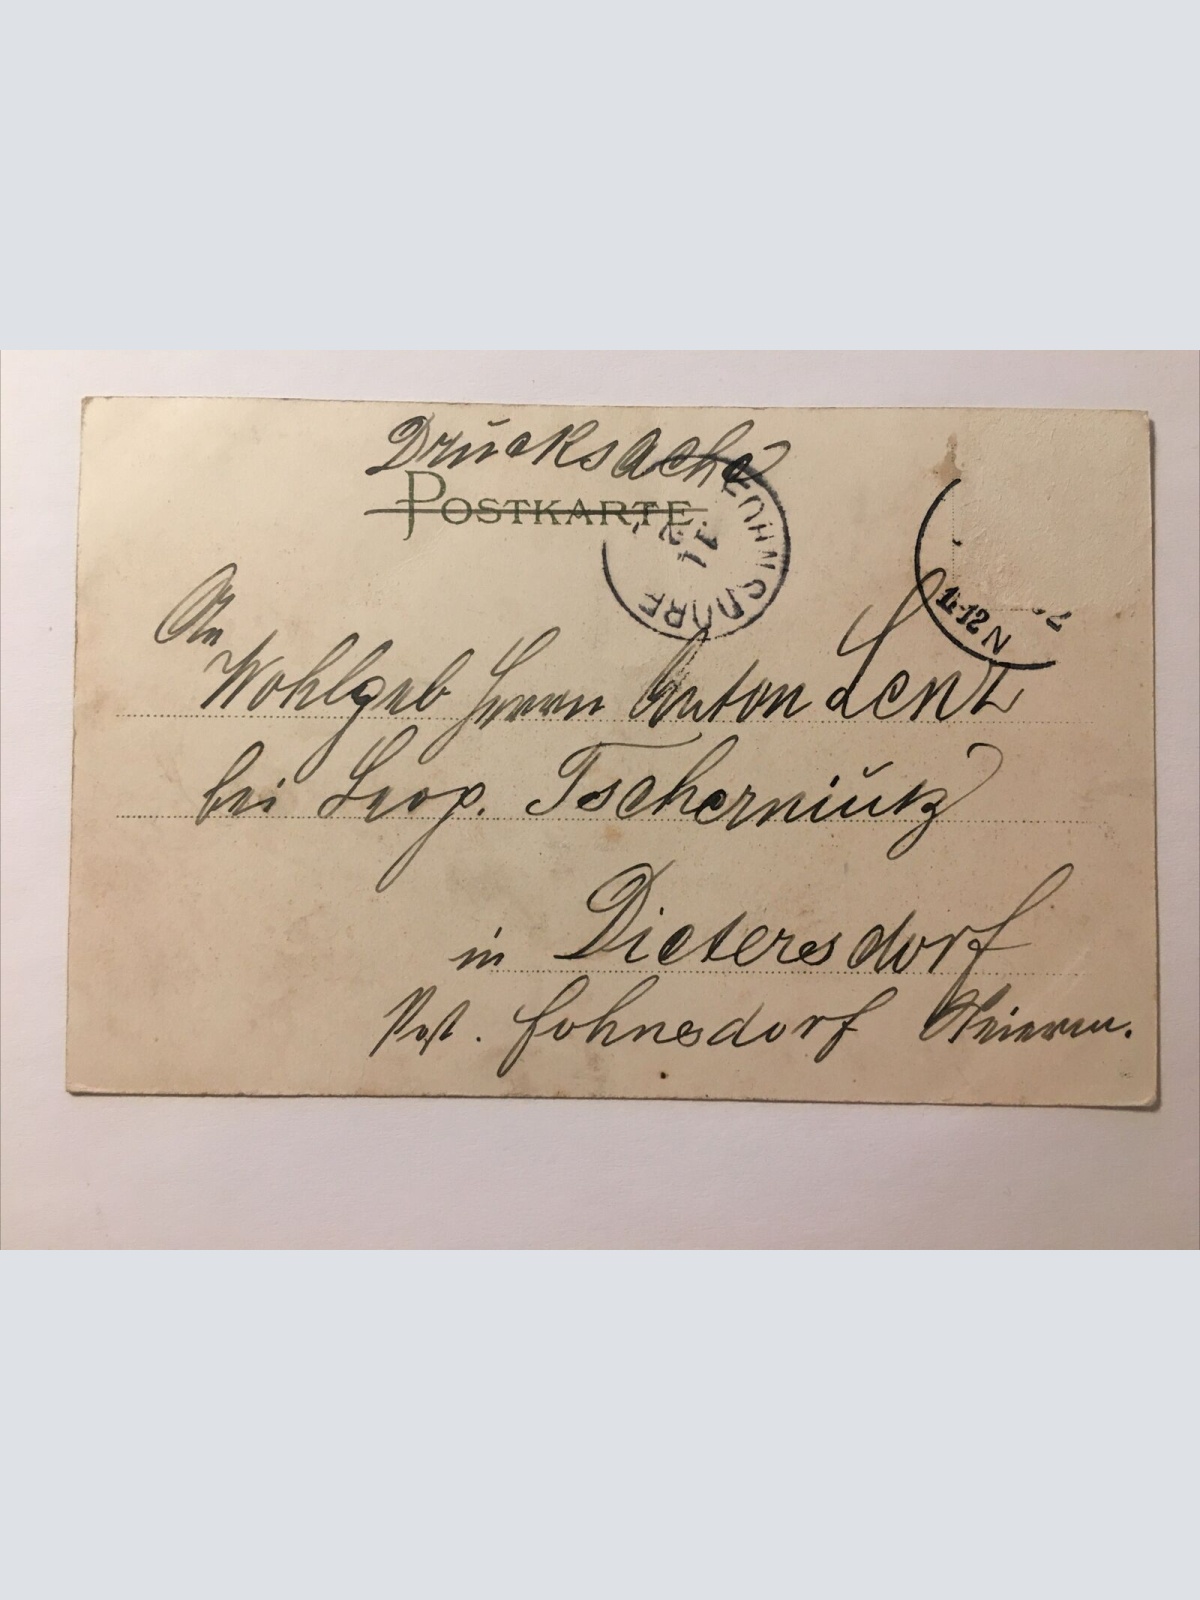 Drucksache
POSTKARTE
FOHNSDORF
11
12 N
An
Wohlgeb Herrn Anton Lenz
bei Leop.
in Dietersdorf
Post. Fohnsdorf Steierm.